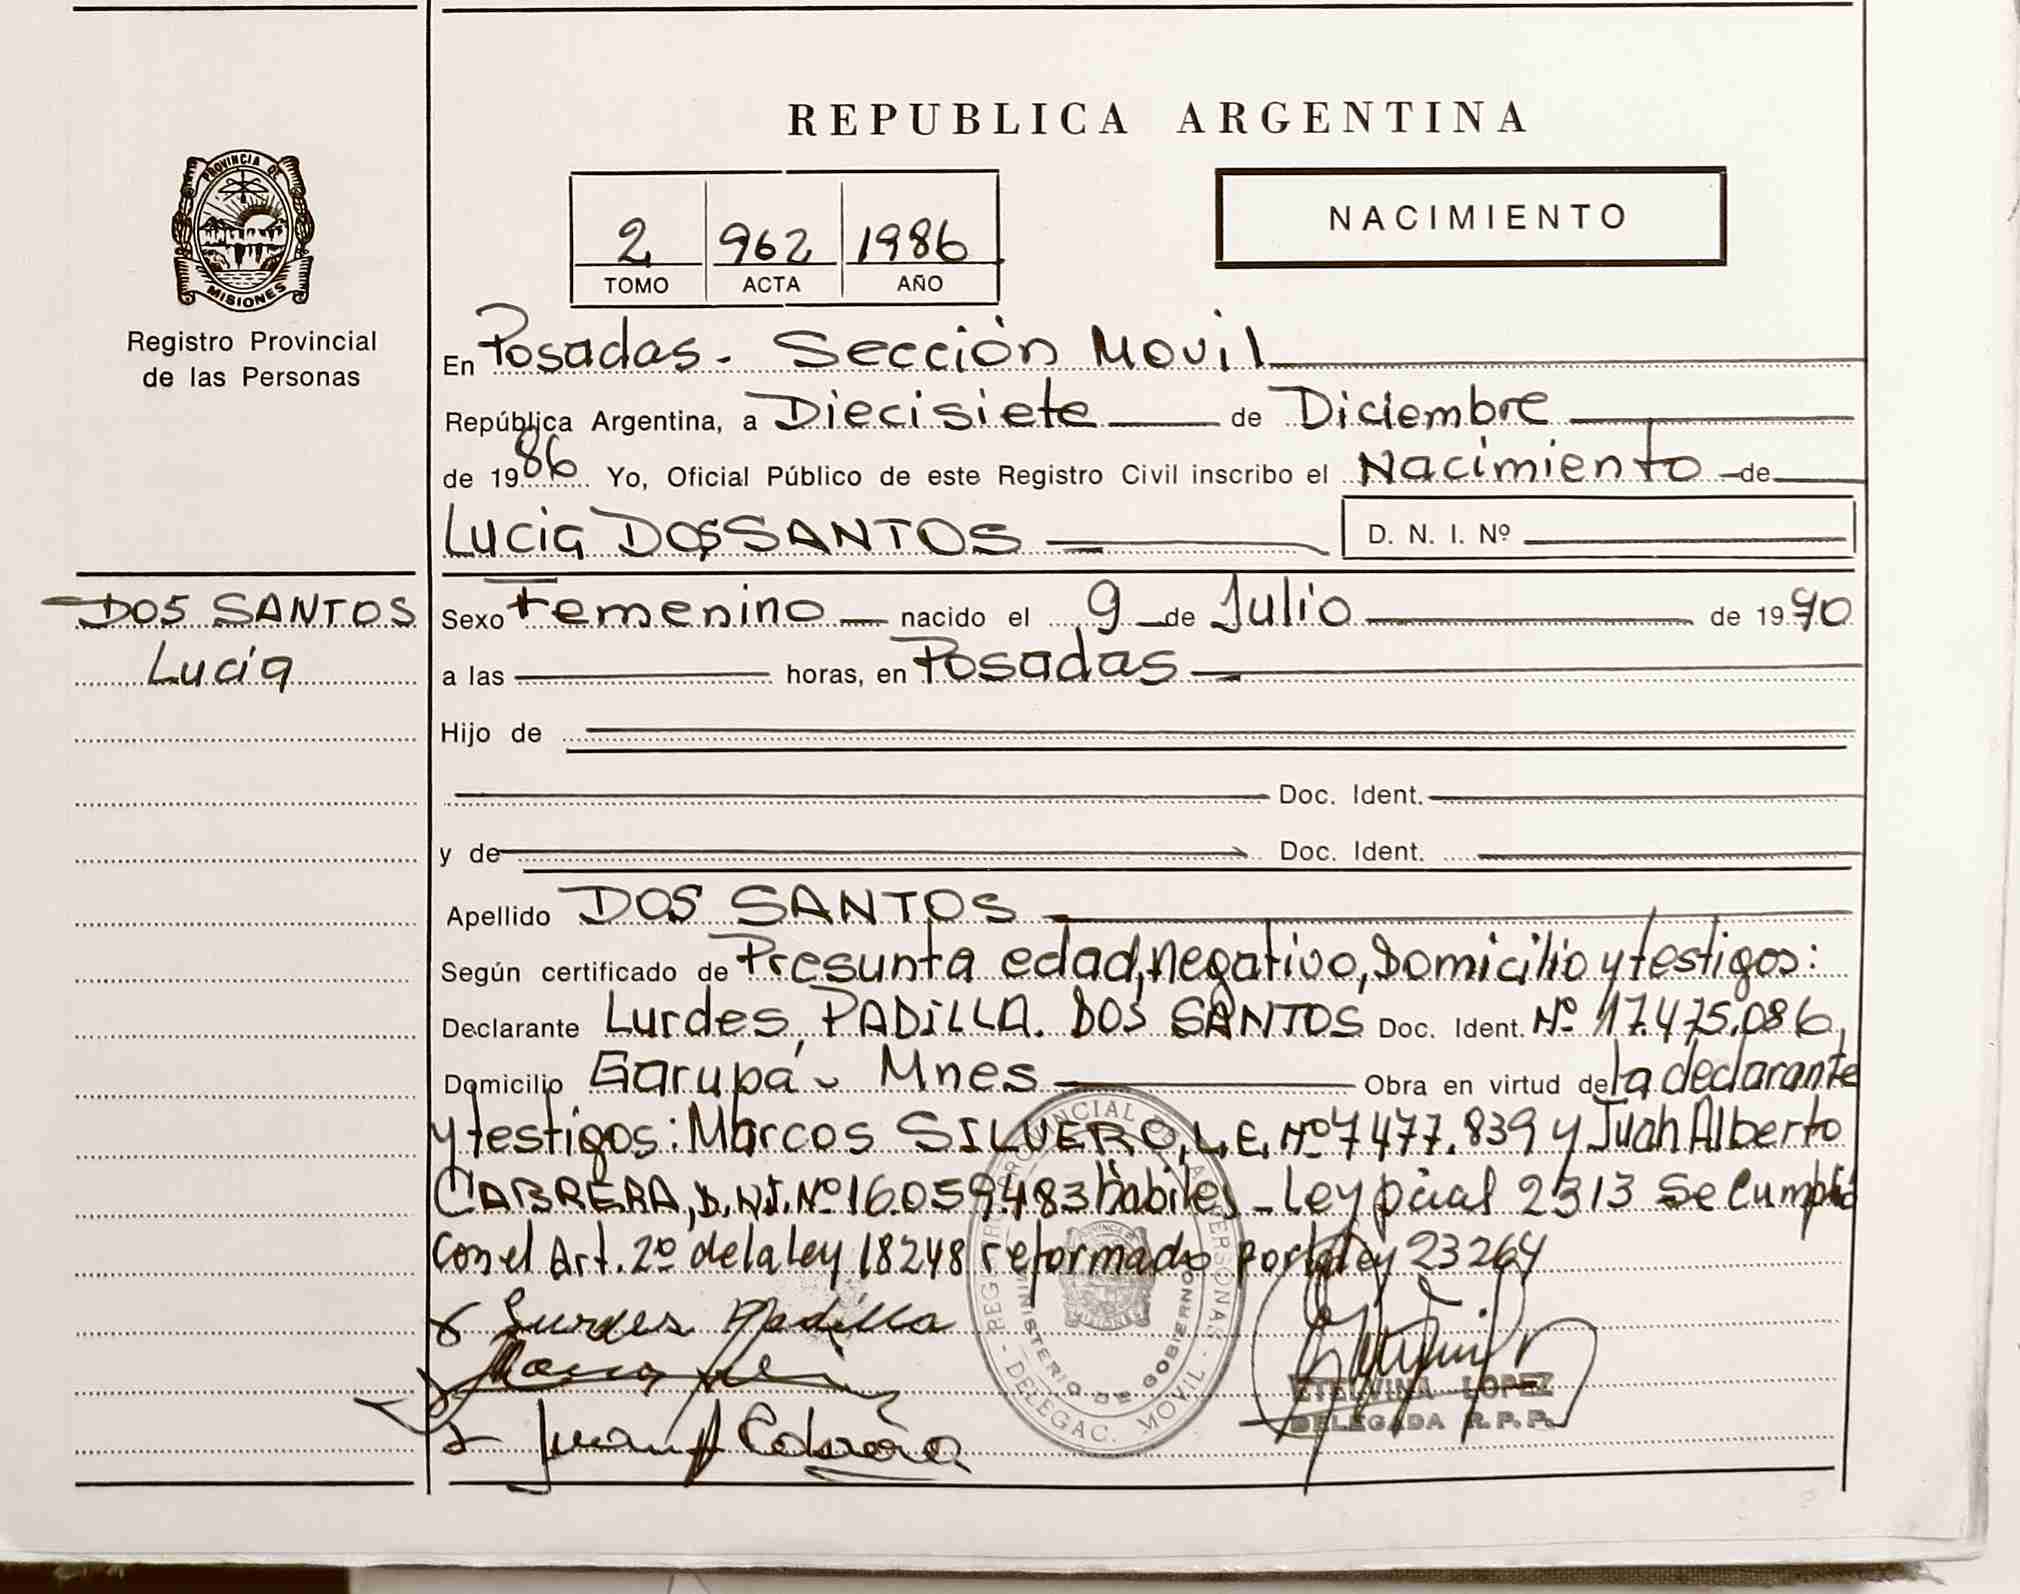 REPUBLICA ARGENTINA
PROVINCIA DE
MISIONES
Registro Provincial
de las Personas
2 962 1986
TOMO ACTA AÑO
NACIMIENTO
En Posadas. Sección Movil
República Argentina, a Diecisiete de Diciembre
de 1986 Yo, Oficial Público de este Registro Civil inscribo el Nacimiento de
Lucia DOSSANTOS D. N. I. Nº
DOS SANTOS
Lucia
Sexo Femenino nacido el 9 de Julio de 1970
a las horas, en Posadas
Hijo de
Doc. Ident.
y de Doc. Ident.
Apellido DOS SANTOS
Según certificado de Presunta edad, negativo, Domicilio y testigos:
Declarante Lurdes PADILLA. DOS SANTOS Doc. Ident. Nº 17.475.086,
Domicilio Garupá - Mnes Obra en virtud de la declarante
y testigos: Marcos SILVERO, L.E. Nº 7477.839 y Juan Alberto
CABRERA, D.N.I. Nº 16.059.483 habiles - Ley pcial 2313 Se Cumplió
con el Art. 2º de la Ley 18248 reformado por la ley 23264
Lurdes Padilla
Juan A Cabrera
REGISTRO PROVINCIAL DE LAS PERSONAS - DELEGAC. MOVIL -
MINISTERIO DE GOBIERNO
ETELVINA LOPEZ
DELEGADA R. P. P.